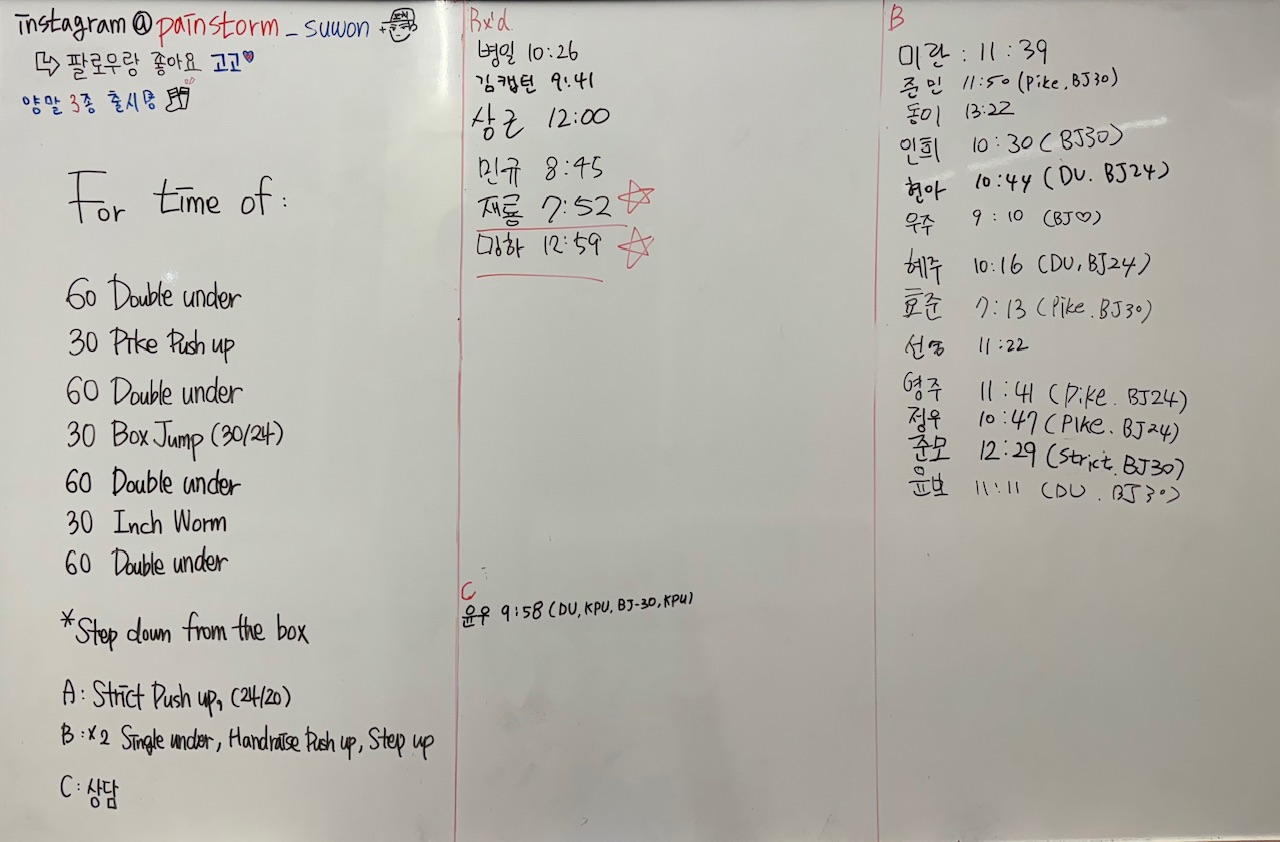 instagram @ painstorm _ suwon
↳ 팔로우랑 좋아요 고고♥
양말 3종 출시중
For time of:
60 Double under
30 Pike Push up
60 Double under
30 Box Jump (30/24)
60 Double under
30 Inch Worm
60 Double under
*Step down from the box
A: Strict Push up, (24/20)
B: x2 Single under, Handraise Push up, Step up
C: 상담
Rx'd
병일 10:26
김캡틴 9:41
상근 12:00
민규 8:45
재룡 7:52 ☆
12:59 ☆
C
윤우 9:58 (DU, KPU, BJ-30, KPU)
B
미란 : 11:39
준민 11:50 (Pike, BJ30)
동이 13:22
인희 10:30 (BJ30)
현아 10:44 (DU. BJ24)
우주 9:10 (BJ♡)
혜주 10:16 (DU, BJ24)
효준 7:13 (Pike. BJ30)
선영 11:22
영주 11:41 (Pike. BJ24)
정우 10:47 (Pike. BJ24)
준모 12:29 (Strict. BJ30)
윤보 11:11 (DU. BJ30)